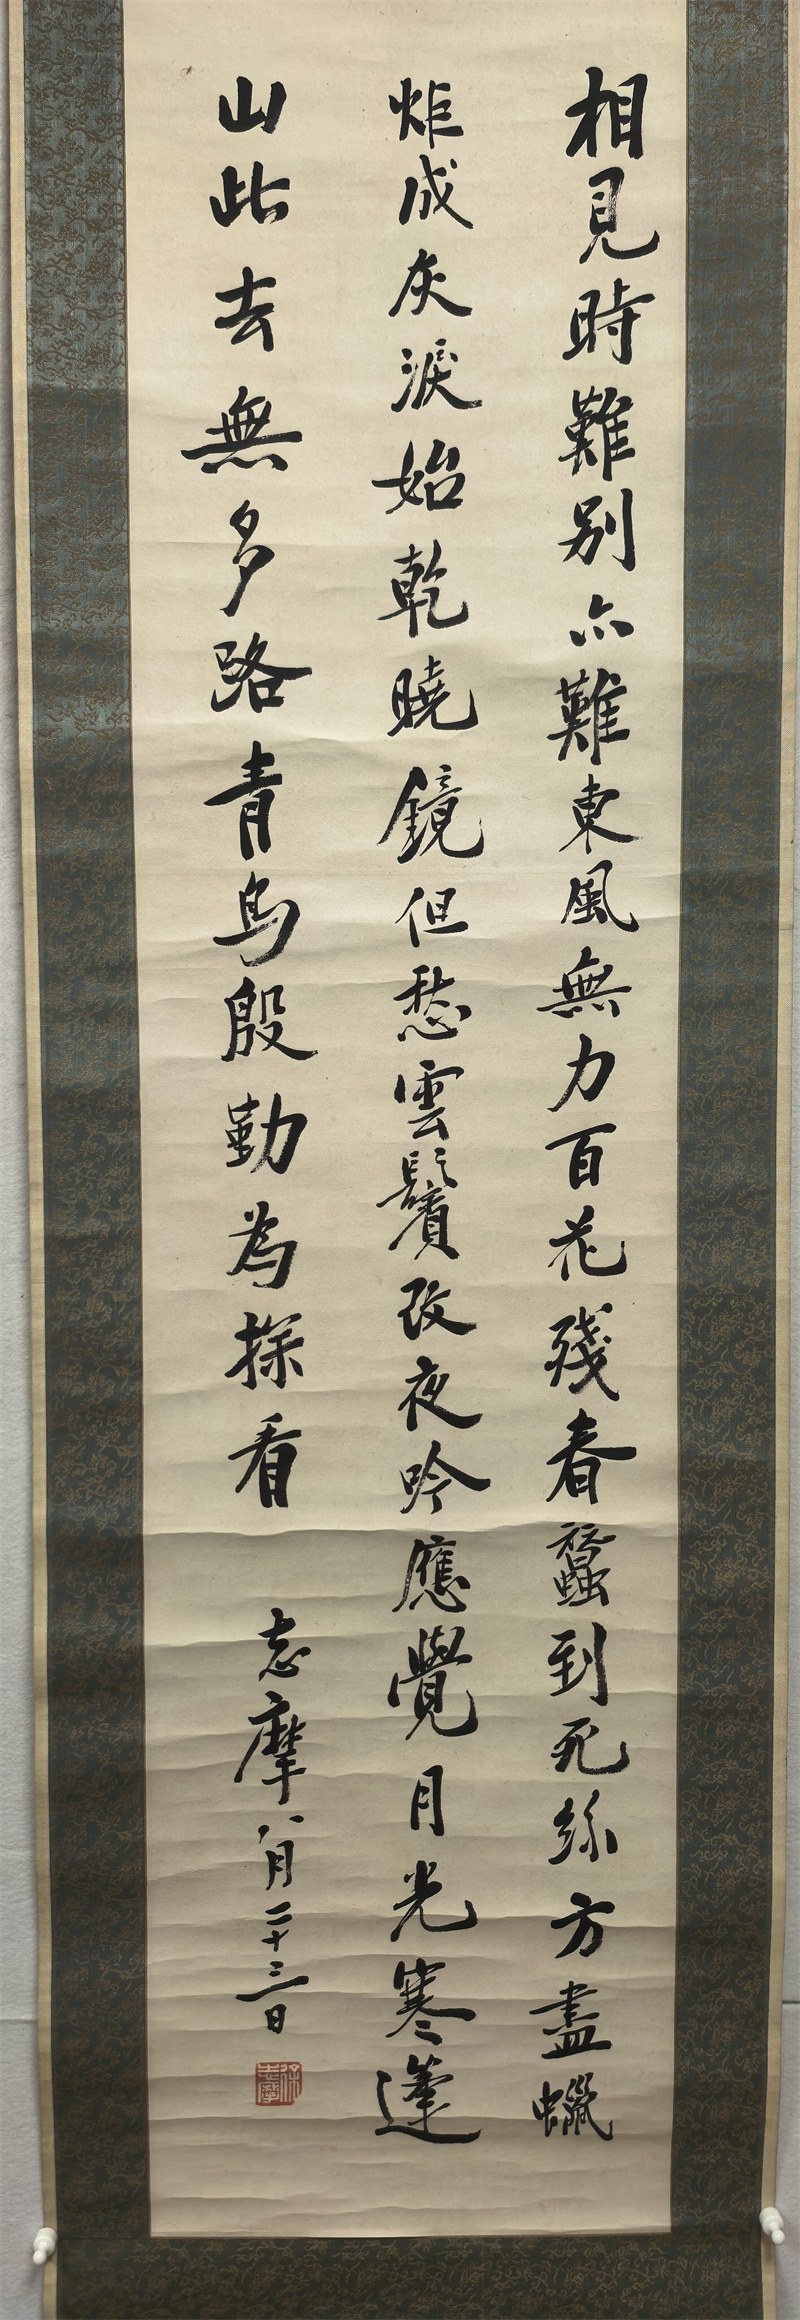 相見時難別亦難東風無力百花殘春蠶到死絲方盡蠟
炬成灰淚始乾曉鏡但愁雲鬢改夜吟應覺月光寒蓬
山此去無多路青鳥殷勤為探看
志摩八月二十三日
徐志摩